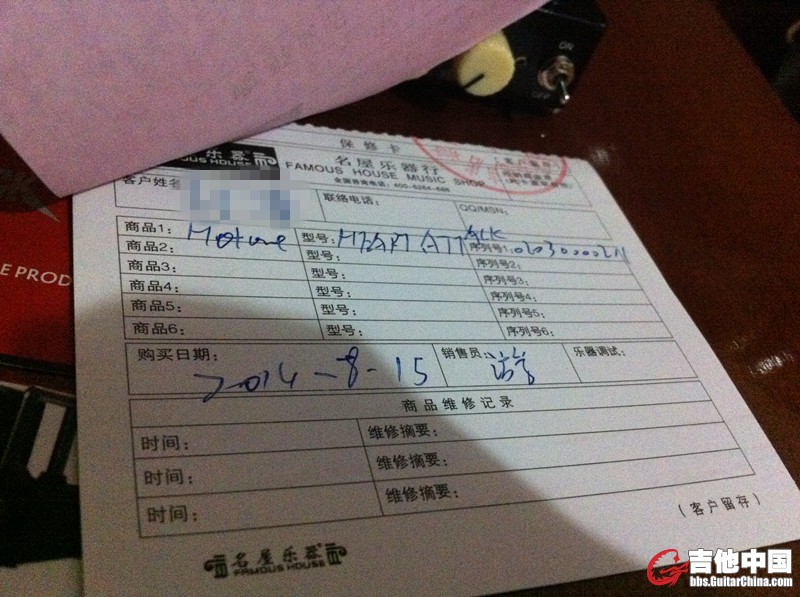 ON
保修卡
乐器
OUS HOUSE
名屋乐器行
FAMOUS HOUSE MUSIC SHOP
全国咨询电话：400-6264-686
客户姓名
联络电话：
QQ/MSN:
商品1：
型号：
序列号1:
商品2：
型号：
序列号2：
商品3：
型号：
序列号3：
商品4：
型号：
序列号4：
商品5：
型号：
序列号5：
商品6：
型号：
序列号6：
购买日期：2014-8-15
销售员：
乐器调试：
商品维修记录
时间：
维修摘要：
时间：
维修摘要：
时间：
维修摘要：
（客户留存）
名屋乐器
FAMOUS HOUSE
E PROD
吉他中国
bbs.GuitarChina.com